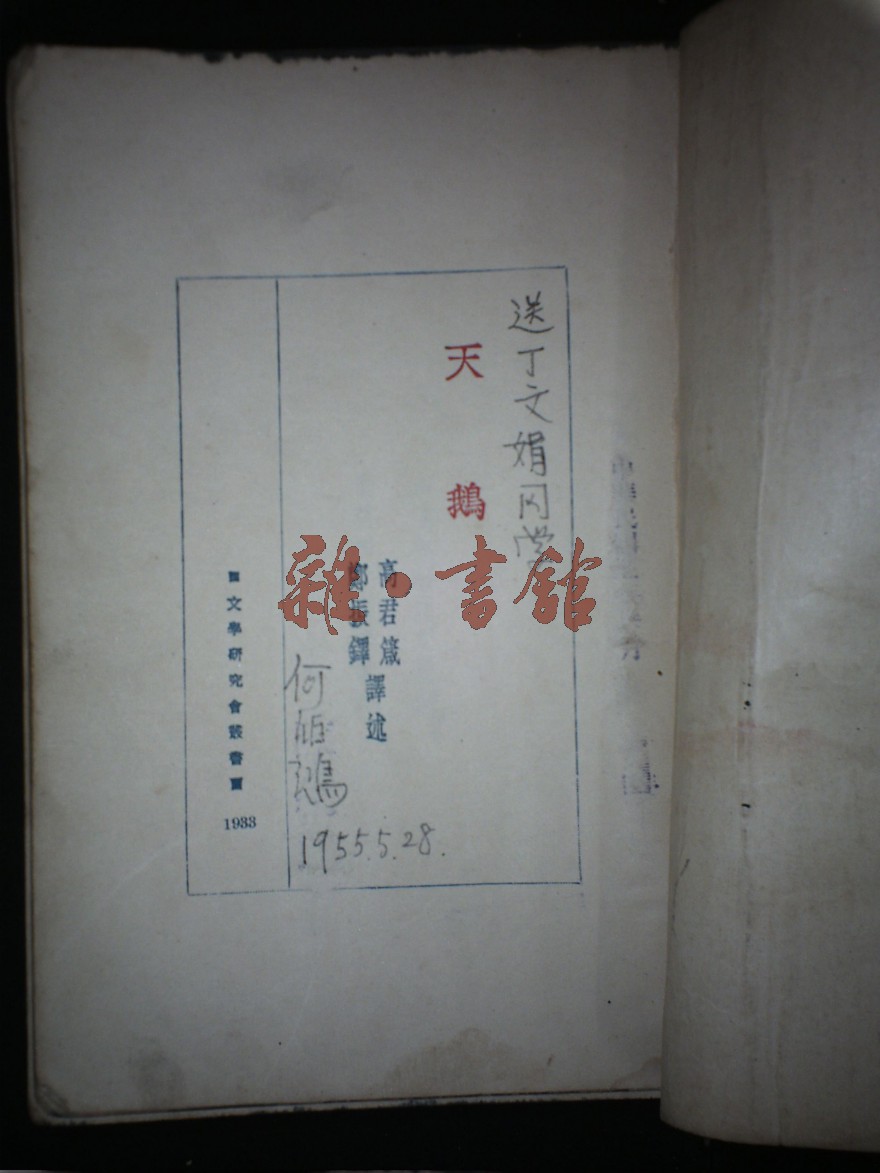 送丁文娟同学
天鵝
高君箴
鄭振鐸
譯述
何
1955.5.28.
文學研究會叢書
1933
雜·書館